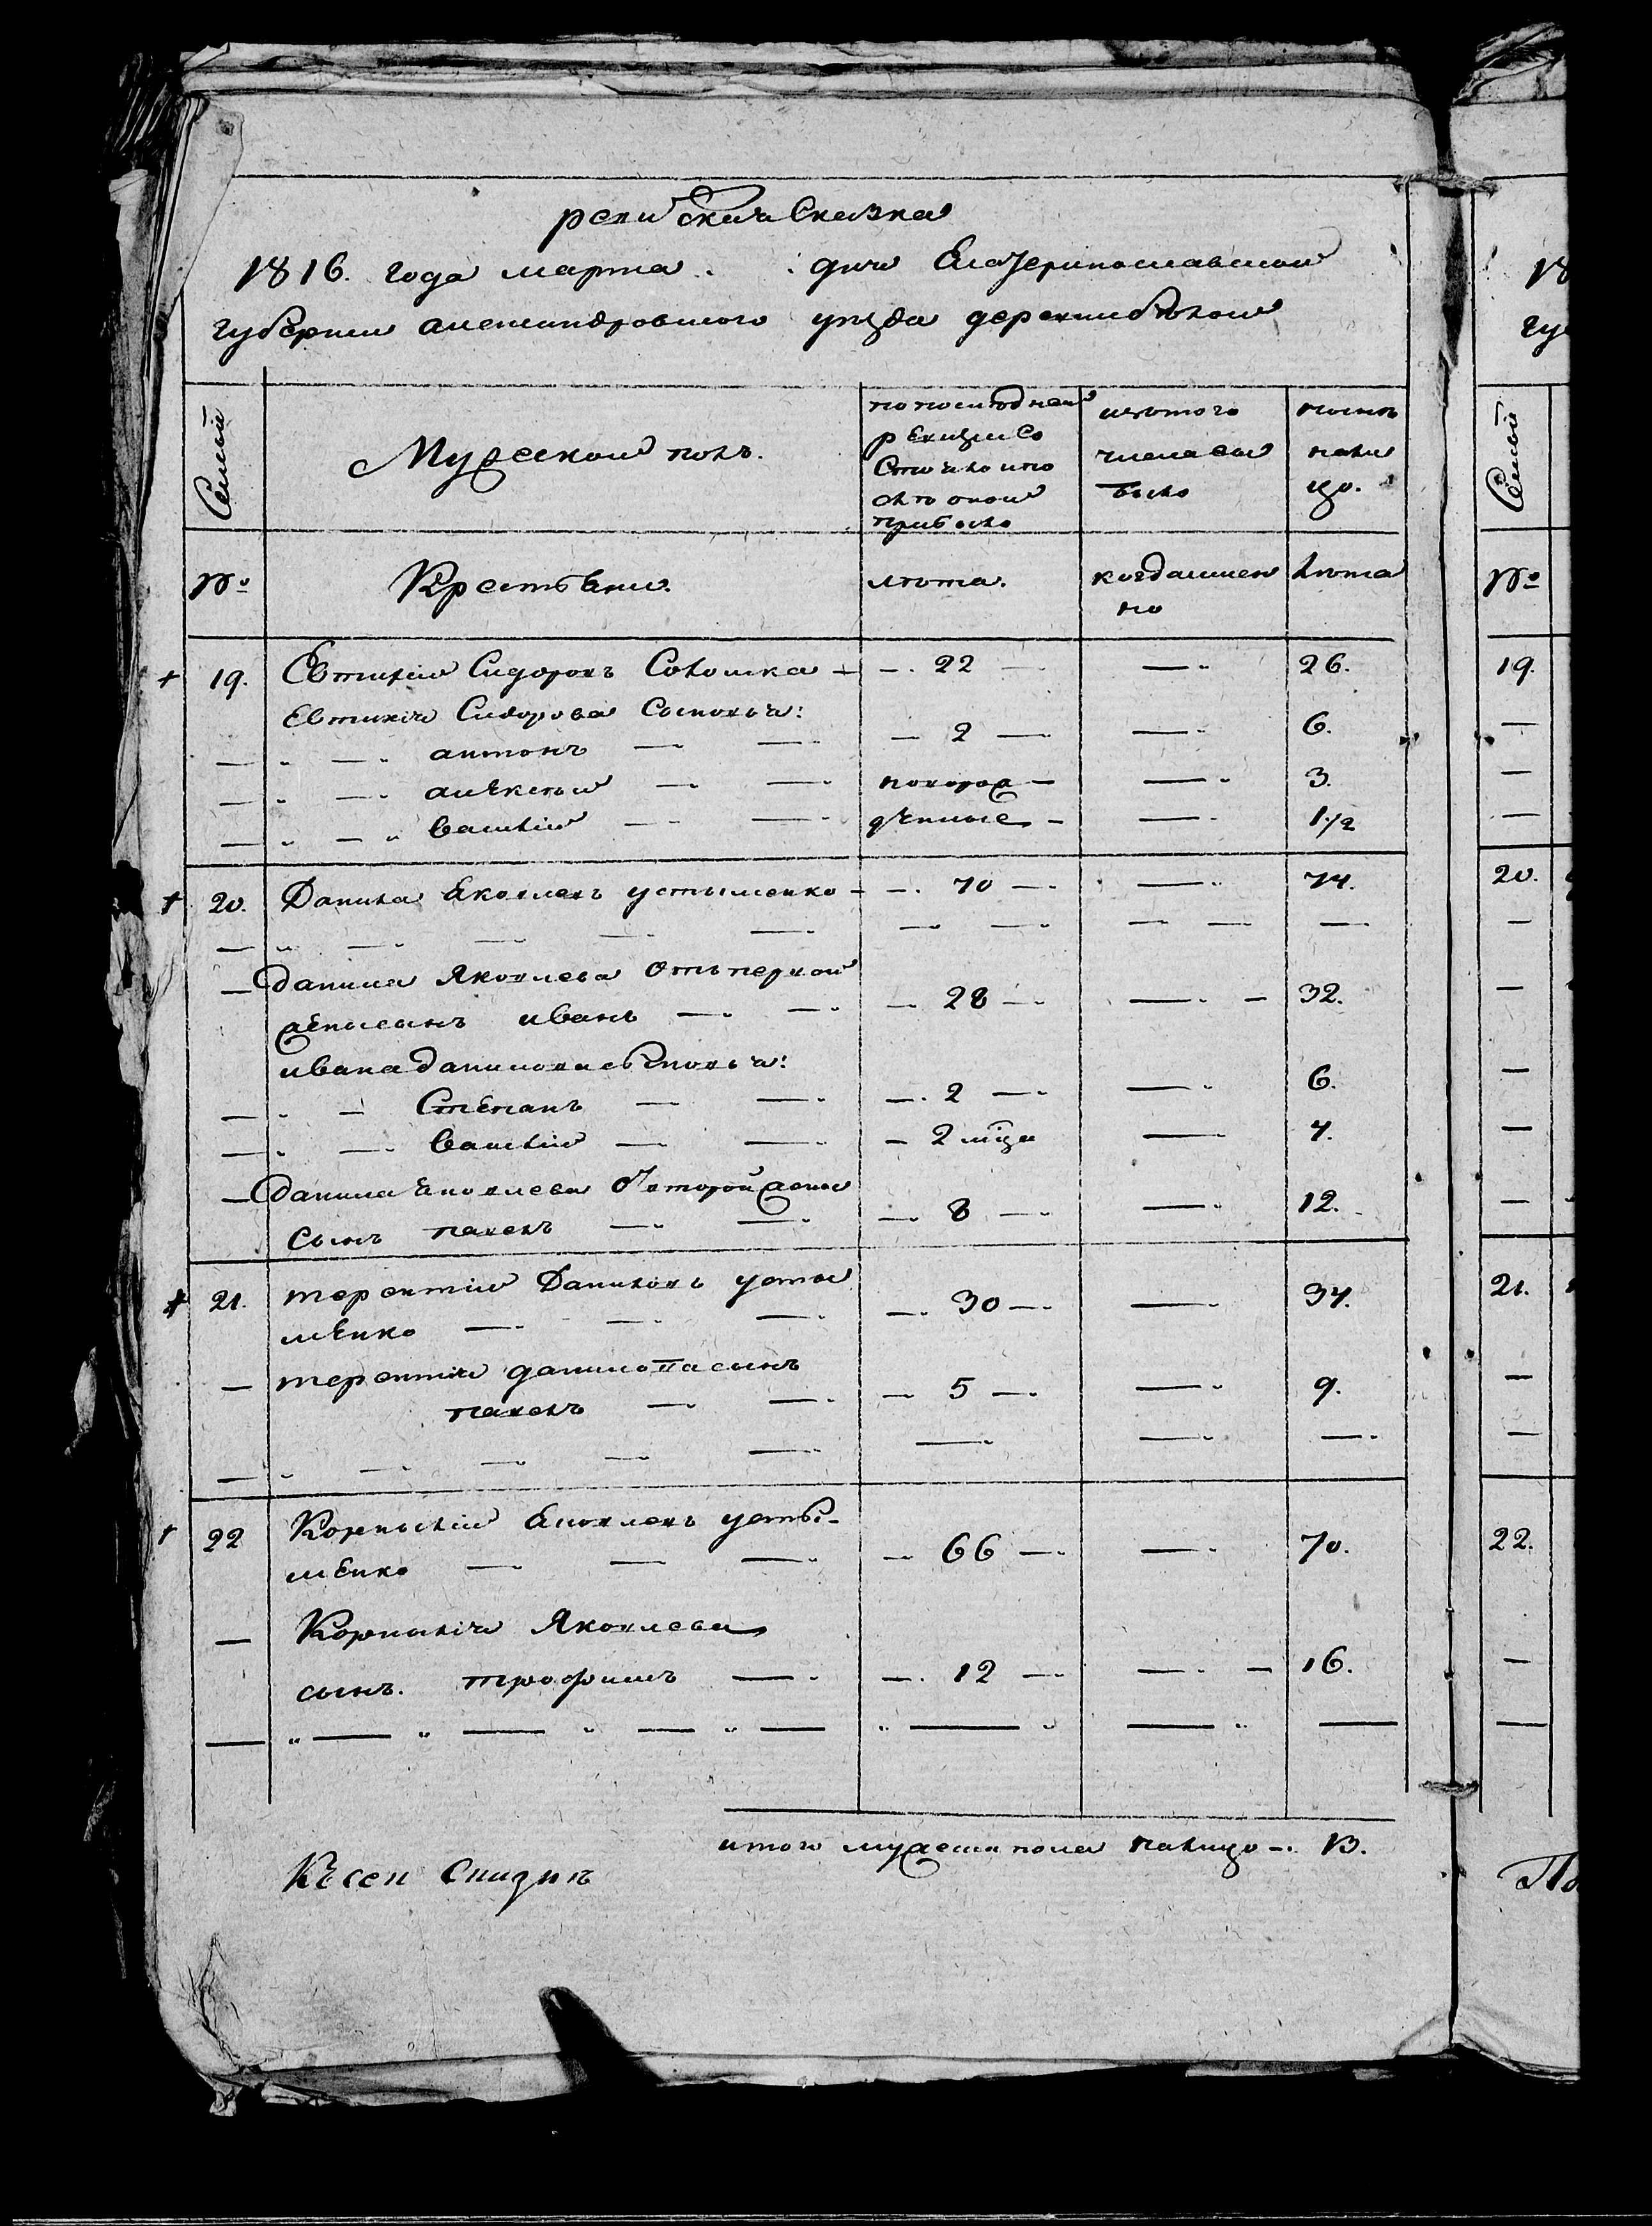 ревижская Сказка
1816. года марта дня Екатеринославской
губернии александровского уезда деревни белой
Семьи
Мужеской полъ.
по последней
ревизии Со
Стояло и по
слѣ оной
прибыло
изтого
числа вы
было
нынѣ
нали
цо.
№
Крестьяни.
лѣта.
когдаимен
но
лѣта
19. Евтихій Сидоровъ Соломка 22 26.
Евтихія Сидорова Сыновья:
антонъ 2 6.
алексѣй новорож 3.
василій денные 1 1/2
20. Данила Яковлевъ устыменко 70 74.
данила Яковлева отъ первой
жены сынъ иванъ 28 32.
ивана данилова сыновья:
Степанъ 2 6.
василій 2 мца 4.
данила Яковлева От второй жены
сынъ павелъ 8 12.
21. терентій Даниловъ усты
менко 30 34.
терентія данилова сынъ
павелъ 5 9.
22 Корнилій Яковлевъ усты-
менко 66 70.
Корнилія Яковлева
сынъ. трофимъ 12 16.
итого мужеска пола налицо 13.
Къ сей
18
гу
Семьи
№
19.
20.
21.
22.